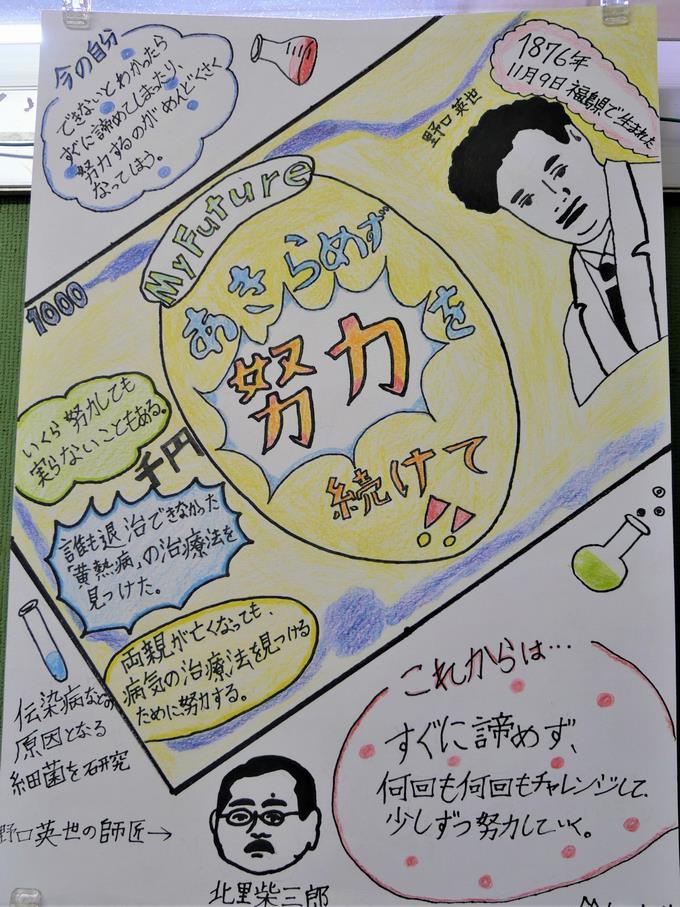 今の自分
できないとわかったら
すぐに諦めてしまったり、
努力するのがめんどくさく
なってしまう。
1876年
11月9日 福島県で生まれた
野口 英世
My Future
あきらめず
努力を
続けて!!
1000
いくら努力しても
実らないこともある。
千円
誰も退治できなかった
「黄熱病」の治療法を
見つけた。
両親が亡くなっても、
病気の治療法を見つける
ために努力する。
伝染病などの
原因となる
細菌を研究
野口英世の師匠→
北里柴三郎
これからは…
すぐに諦めず、
何回も何回もチャレンジして、
少しずつ努力していく。